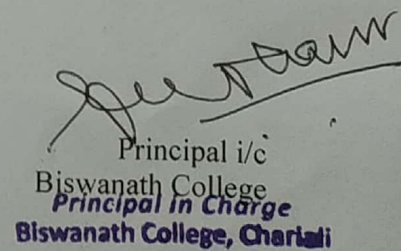 Principal i/c
Biswanath College
Principal In Charge
Biswanath College, Chariali